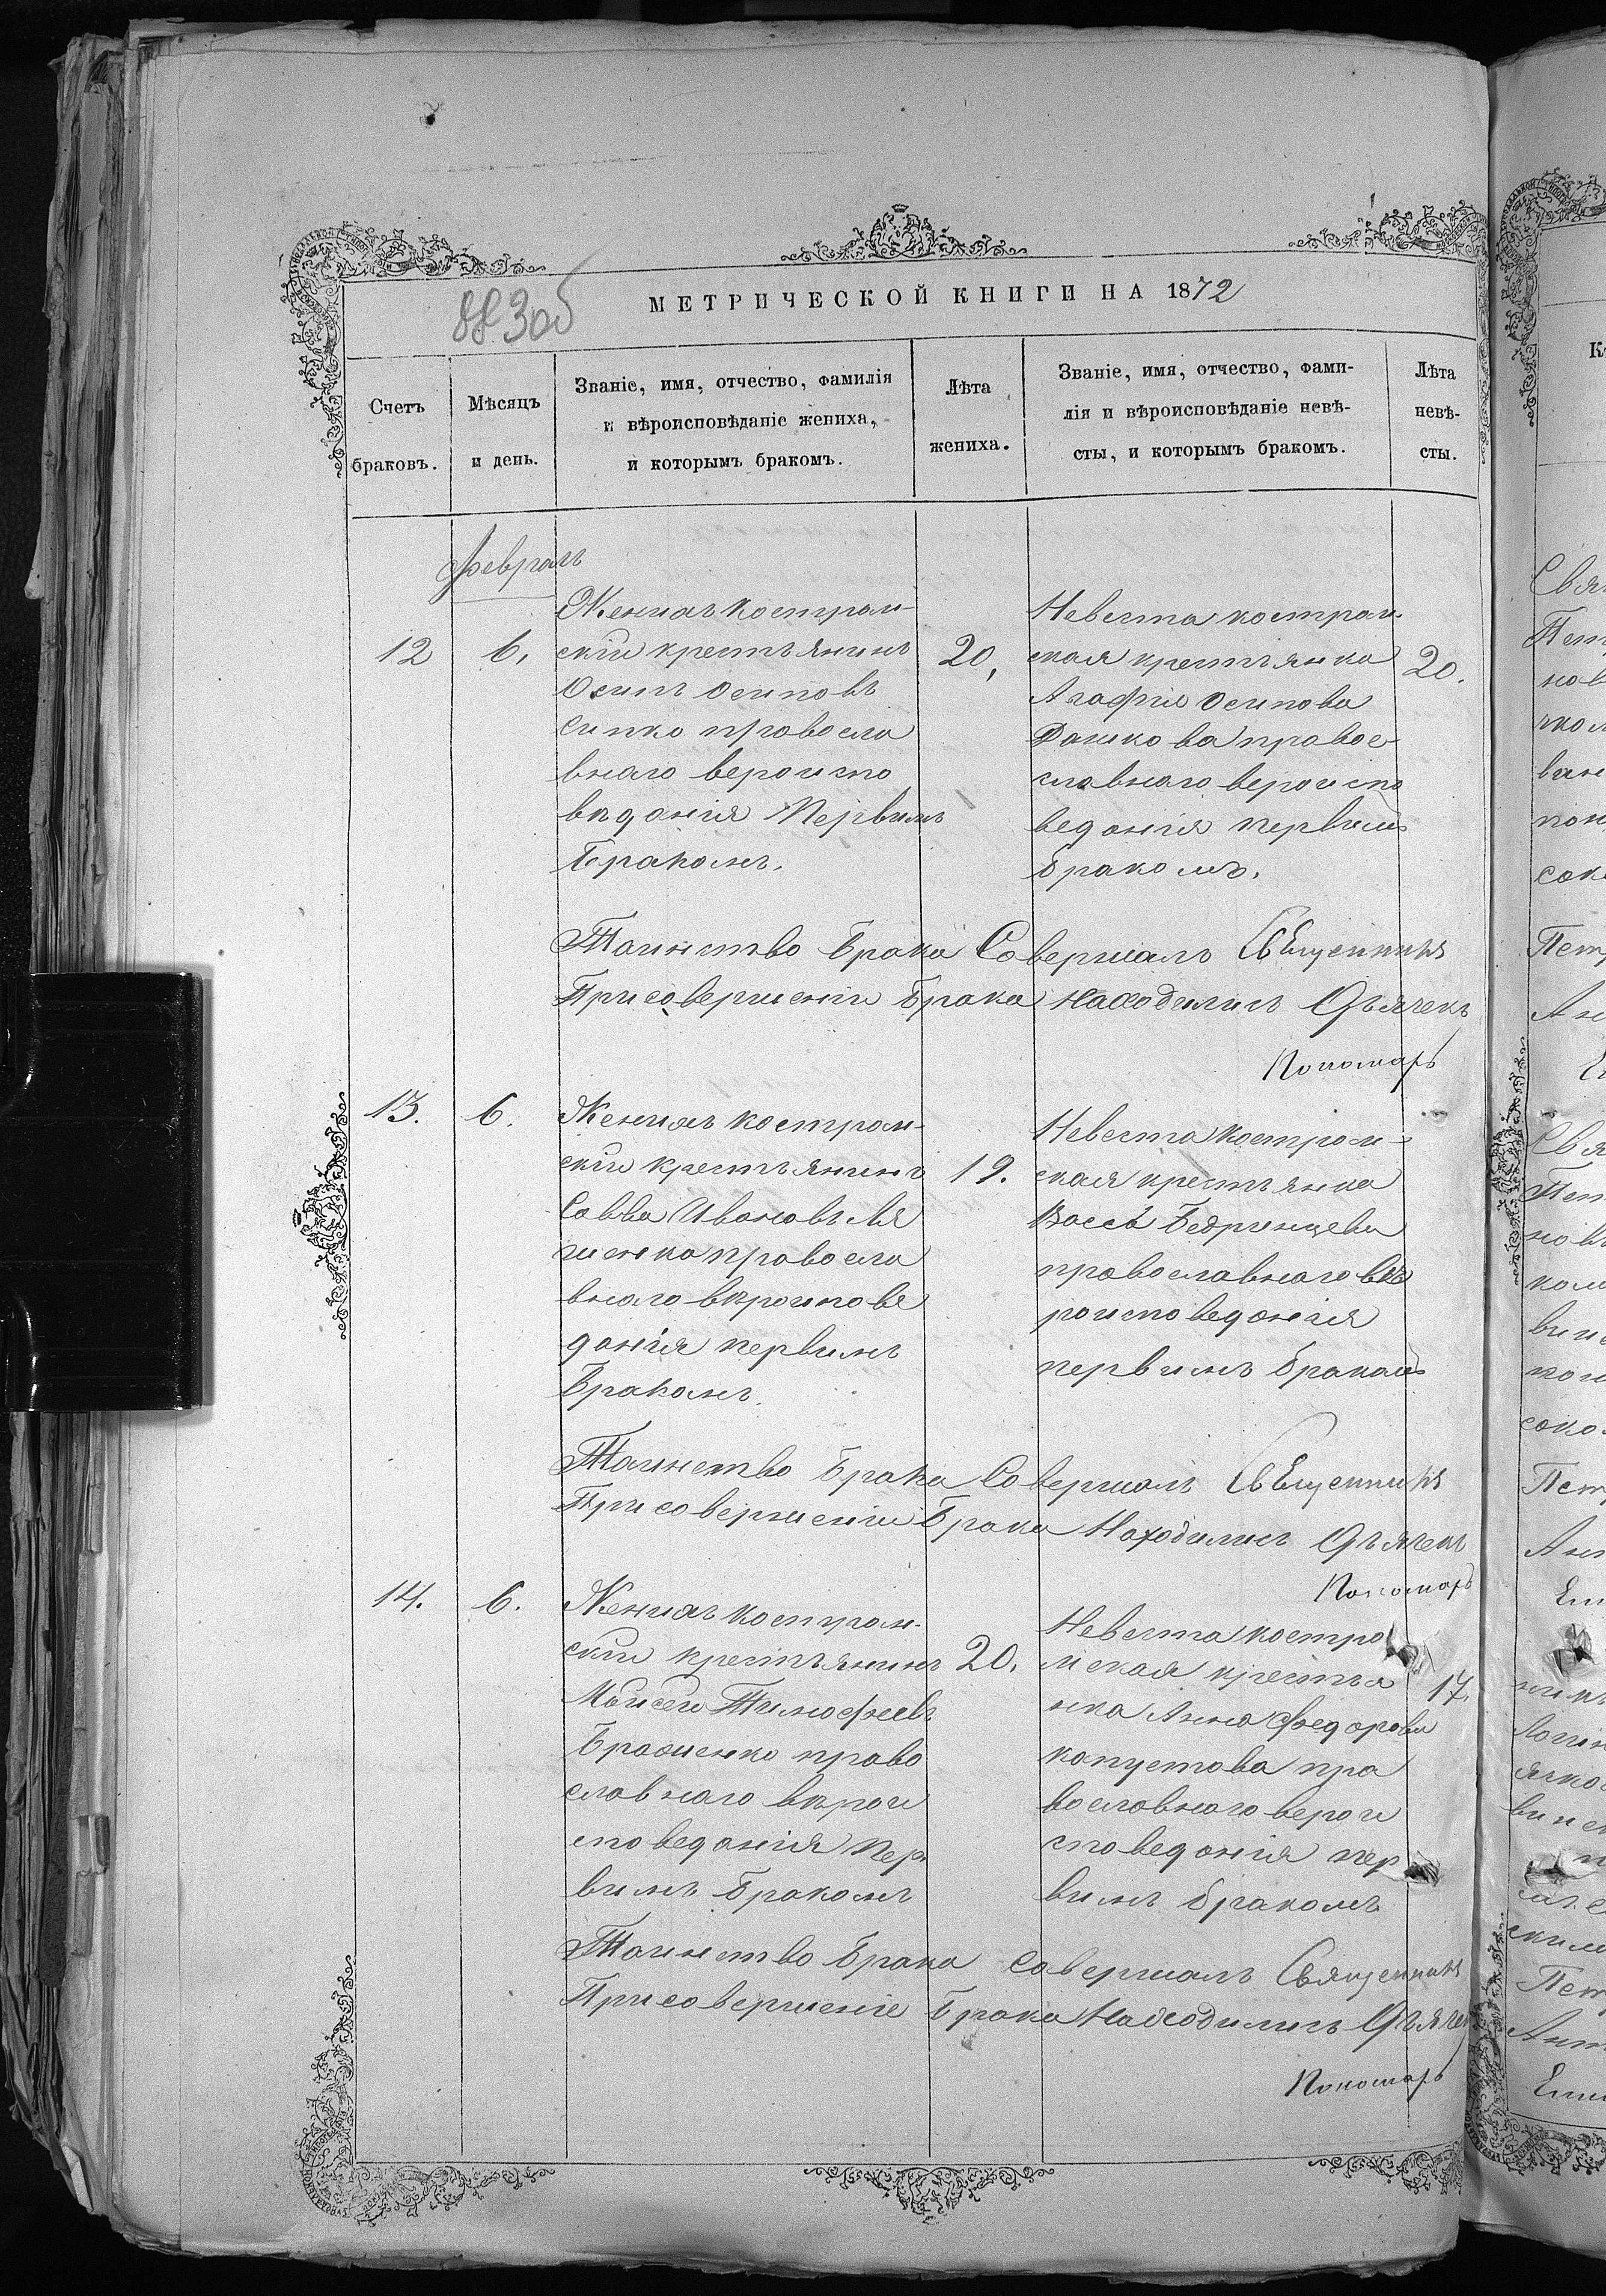 883об
МЕТРИЧЕСКОЙ КНИГИ НА 1872
Счетъ браковъ.
Мѣсяцъ и день.
Званіе, имя, отчество, фамилія
и вѣроисповѣданіе жениха,
и которымъ бракомъ.
Лѣта
жениха.
Званіе, имя, отчество, фами-
лія и вѣроисповѣданіе невѣ-
сты, и которымъ бракомъ.
Лѣта
невѣ-
сты.
Февраль
12
6,
Женихъ костром-
скій крестьянинъ
Осипъ Осиповъ
Сипко правосла
внаго вероиспо
вѣданія Первымъ
Бракомъ.
20,
Невеста костром-
ская крестьянка
Агафія Осипова
Дашкова правос-
славнаго вероиспо
веданія первымъ
бракомъ.
20.
Таинство Брака Совершалъ Свѣщенникъ
При совершеніи Брака Находились Дьячекъ
Пономарь
13.
6.
Женихъ костром-
скій крестьянинъ
Савва Ивановъ Ля
шенко правосла
внаго вѣроиспове
данія первымъ
Бракомъ.
19.
Невеста костром-
ская крестьянка
Васса Бедринцева
православнаго вѣ
роисповеданія
первымъ бракомъ
Таинство Брака Совершалъ Свѣщенникъ
При совершеніи Брака Находились Дьячекъ
Пономарь
14.
6.
Женихъ костром-
скій крестьянинъ
Мойсей Тимофеевъ
Браженко право
славнаго вѣрои
споведанія Пер
вымъ Бракомъ
20.
Невеста костро
мская крестья
нка Анна Федорова
Капустова пра
вославнаго верои
споведанія пер
вымъ бракомъ
17.
Таинство Брака Совершалъ Священникъ
При совершеніе Брака Находились Дьячек
Пономарь